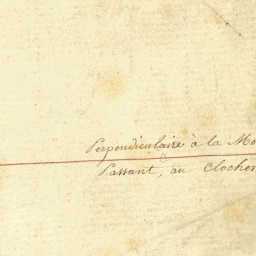 Perpendiculaire à la Me
Passant, au Clocher